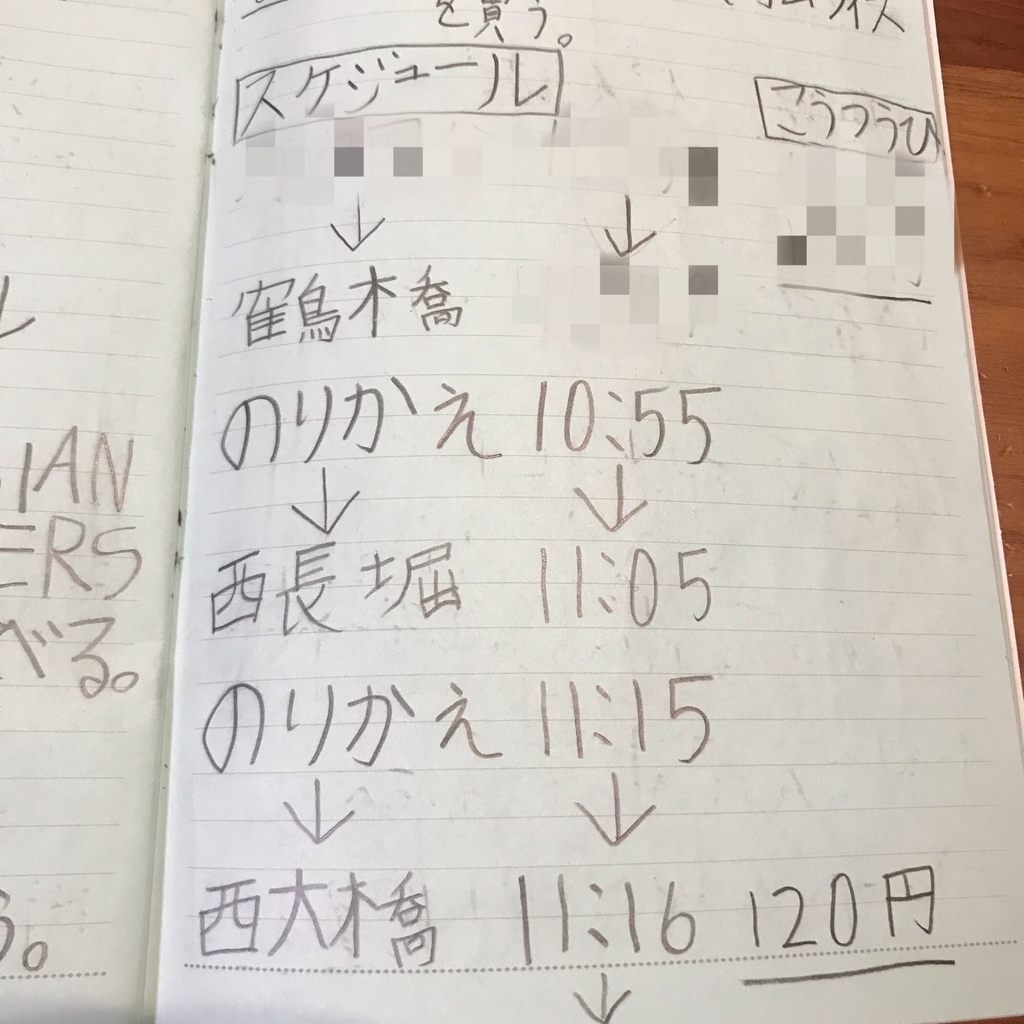 を買う。
ライス
スケジュール
こうつうひ
↓ ↓
鶴橋
のりかえ 10:55
↓ ↓
西長堀 11:05
のりかえ 11:15
↓ ↓
西大橋 11:16 120円
↓
IAN
ERS
べる。
る。